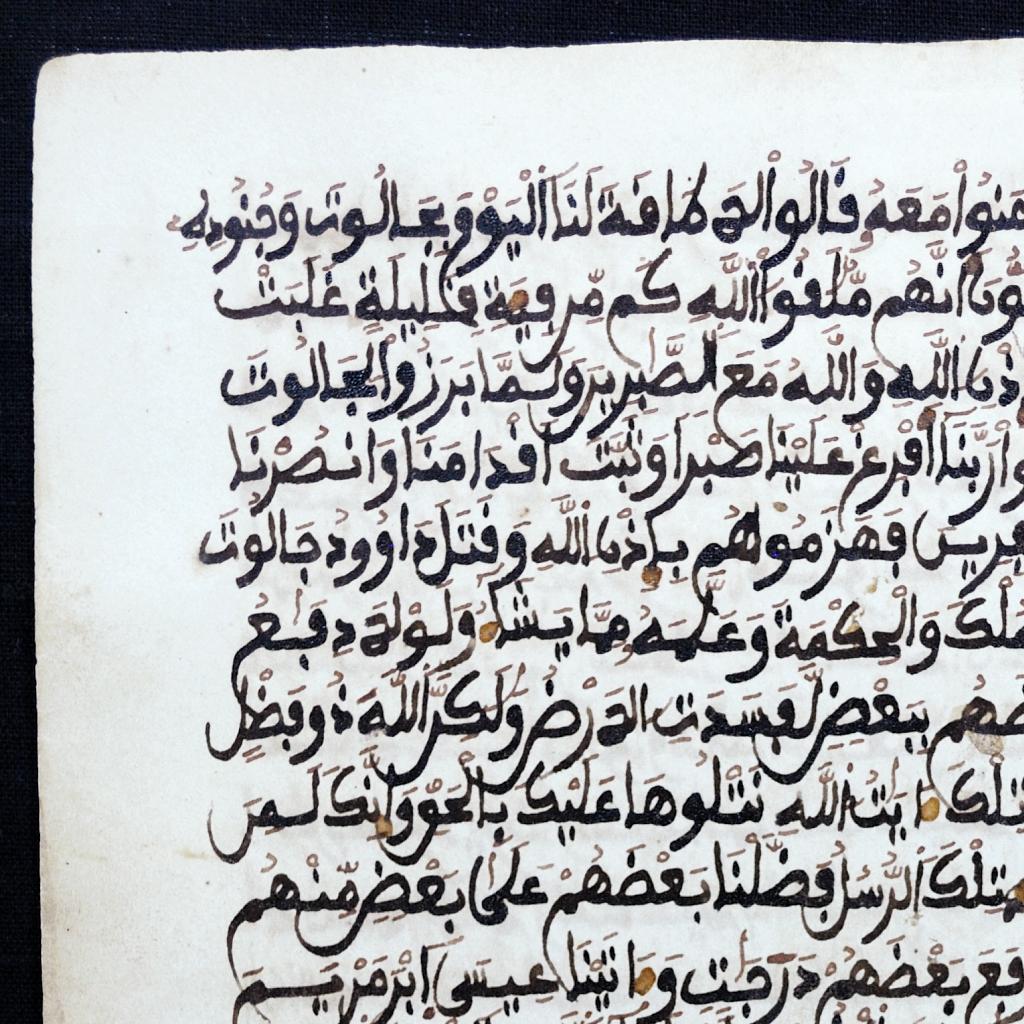 ءامنوا معه قالوا لا طاقة لنا اليوم بجالوت وجنوده
أنهم ملقوا الله كم من فئة قليلة غلبت
بإذن الله والله مع الصبرين ولما برزوا لجالوت
ربنا أفرغ علينا صبرا وثبت أقدامنا وانصرنا
فهزموهم بإذن الله وقتل داوود جالوت
الملك والحكمة وعلمه مما يشاء ولولا دفع
بعضهم ببعض لفسدت الارض ولكن الله ذو فضل
تلك ءايت الله نتلوها عليك بالحق وإنك لمن
تلك الرسل فضلنا بعضهم على بعض منهم
ورفع بعضهم درجت وءاتينا عيسى ابن مريم